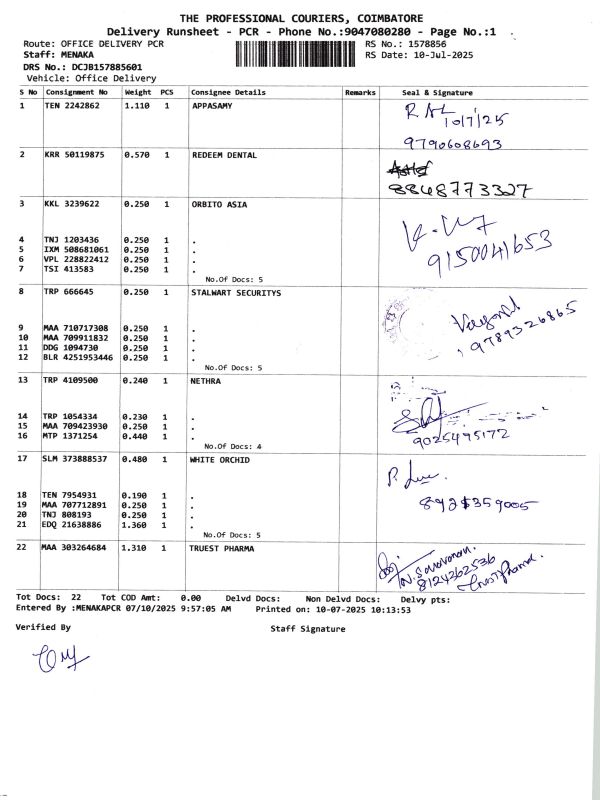 THE PROFESSIONAL COURIERS, COIMBATORE
Delivery Runsheet - PCR - Phone No.:9047080280 - Page No.:1
Route: OFFICE DELIVERY PCR RS No.: 1578856
Staff: MENAKA RS Date: 10-Jul-2025
DRS No.: DCJB157885601
Vehicle: Office Delivery
S No Consignment No Weight PCS Consignee Details Remarks Seal & Signature
1 TEN 2242862 1.110 1 APPASAMY
10/7/25
9790608693
2 KRR 50119875 0.570 1 REDEEM DENTAL
8848773327
3 KKL 3239622 0.250 1 ORBITO ASIA
9150041653
4 TNJ 1203436 0.250 1 .
5 IXM 508681061 0.250 1 .
6 VPL 228822412 0.250 1 .
7 TSI 413583 0.250 1 .
No.Of Docs: 5
8 TRP 666645 0.250 1 STALWART SECURITYS
9789326865
9 MAA 710717308 0.250 1 .
10 MAA 709911832 0.250 1 .
11 DDG 1094730 0.250 1 .
12 BLR 4251953446 0.250 1 .
No.Of Docs: 5
13 TRP 4109500 0.240 1 NETHRA
14 TRP 1054334 0.230 1 .
15 MAA 709423930 0.250 1 .
16 MTP 1371254 0.440 1 .
9025495172
No.Of Docs: 4
17 SLM 373888537 0.480 1 WHITE ORCHID
18 TEN 7954931 0.190 1 .
19 MAA 707712891 0.250 1 .
20 TNJ 808193 0.250 1 .
21 EDQ 21638886 1.360 1 .
No.Of Docs: 5
22 MAA 303264684 1.310 1 TRUEST PHARMA
N. Saravanan.
8124262536
Truest Pharma.
Tot Docs: 22 Tot COD Amt: 0.00 Delvd Docs: Non Delvd Docs: Delvy pts:
Entered By :MENAKAPCR 07/10/2025 9:57:05 AM Printed on: 10-07-2025 10:13:53
Verified By Staff Signature